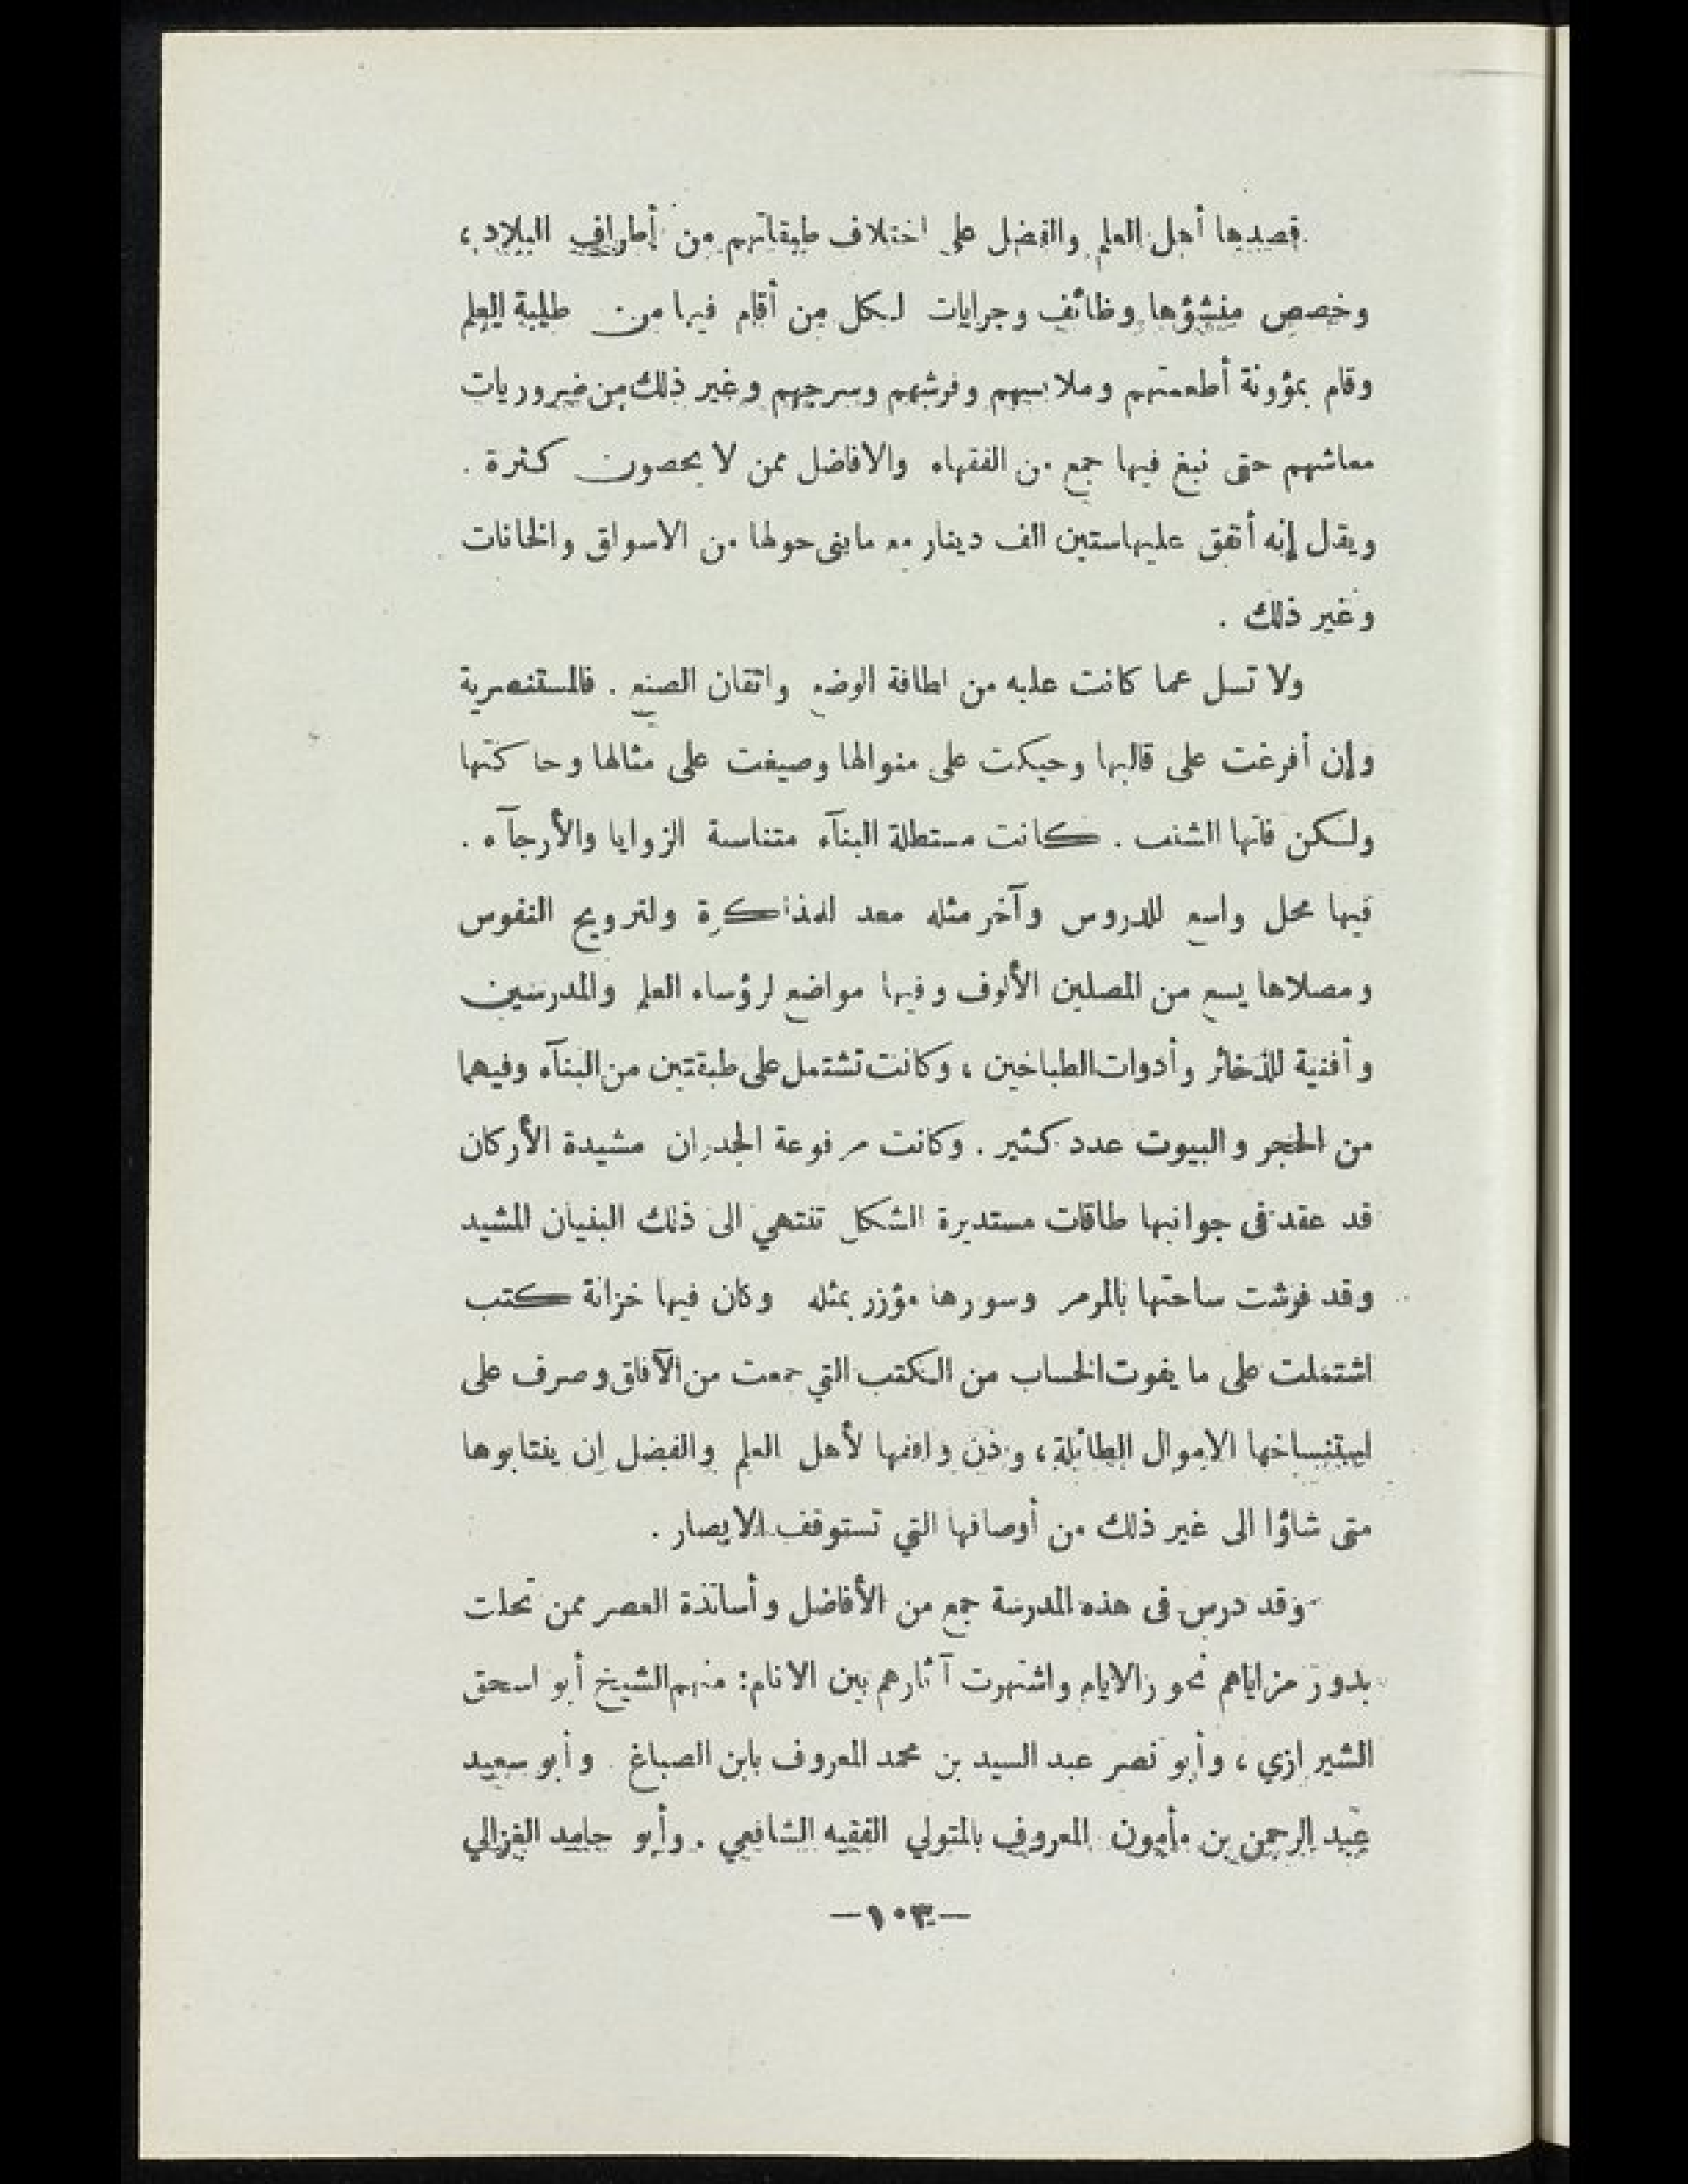 قصدها أهل العلم والفضل على اختلاف طبقاتهم من أطراف البلاد ،
وخصص منشؤها وظائف وجرايات لكل من أقام فيها من طلبة العلم
وقام بمؤونة أطعمتهم وملابسهم وفرشهم وسرجهم وغير ذلك من ضروريات
معاشهم حتى نبغ فيها جمع من الفقهاء والافاضل ممن لا يحصون كثرة .
ويقال إنه أنفق عليها ستين الف دينار مع ما بنى حولها من الاسواق والخانات
وغير ذلك .
ولا تسل عما كانت عليه من لطافة الوضع واتقان الصنع . فالمستنصرية
وإن أفرغت على قالبها وحيكت على منوالها وصيغت على مثالها وحاكتها
ولكن فاتها الشنب . كانت مستطلة البنآء متناسبة الزوايا والأرجآء .
فيها محل واسع للدروس وآخر مثله معد للمذاكرة ولترويح النفوس
ومصلاها يسع من المصلين الألوف وفيها مواضع لرؤساء العلم والمدرسين
وأفنية للذخائر وأدوات الطباخين ، وكانت تشتمل على طبقتين من البنآء وفيهما
من الحجر والبيوت عدد كثير . وكانت مرفوعة الجدران مشيدة الأركان
قد عقد فى جوانبها طاقات مستديرة الشكل تنتهي الى ذلك البنيان المشيد
وقد فرشت ساحتها بالمرمر وسورها مؤزر بمثله وكان فيها خزانة كتب
اشتملت على ما يفوت الحساب من الكتب التي جمعت من الآفاق وصرف على
استنساخها الاموال الطائلة ، وذن واقفها لأهل العلم والفضل ان ينتابوها
متى شاؤا الى غير ذلك من أوصافها التي تستوقف الابصار .
وقد درس فى هذه المدرسة جمع من الأفاضل وأساتذة العصر ممن تحلت
بدور مزاياهم نحور الايام واشتهرت آثارهم بين الانام : منهم الشيخ أبو اسحق
الشيرازي ، وأبو نصر عبد السيد بن محمد المعروف بابن الصباغ . وأبو سعيد
عبد الرحمن بن مأمون المعروف بالمتولي الفقيه الشافعي . وأبو حامد الغزالي
—١٠٣—